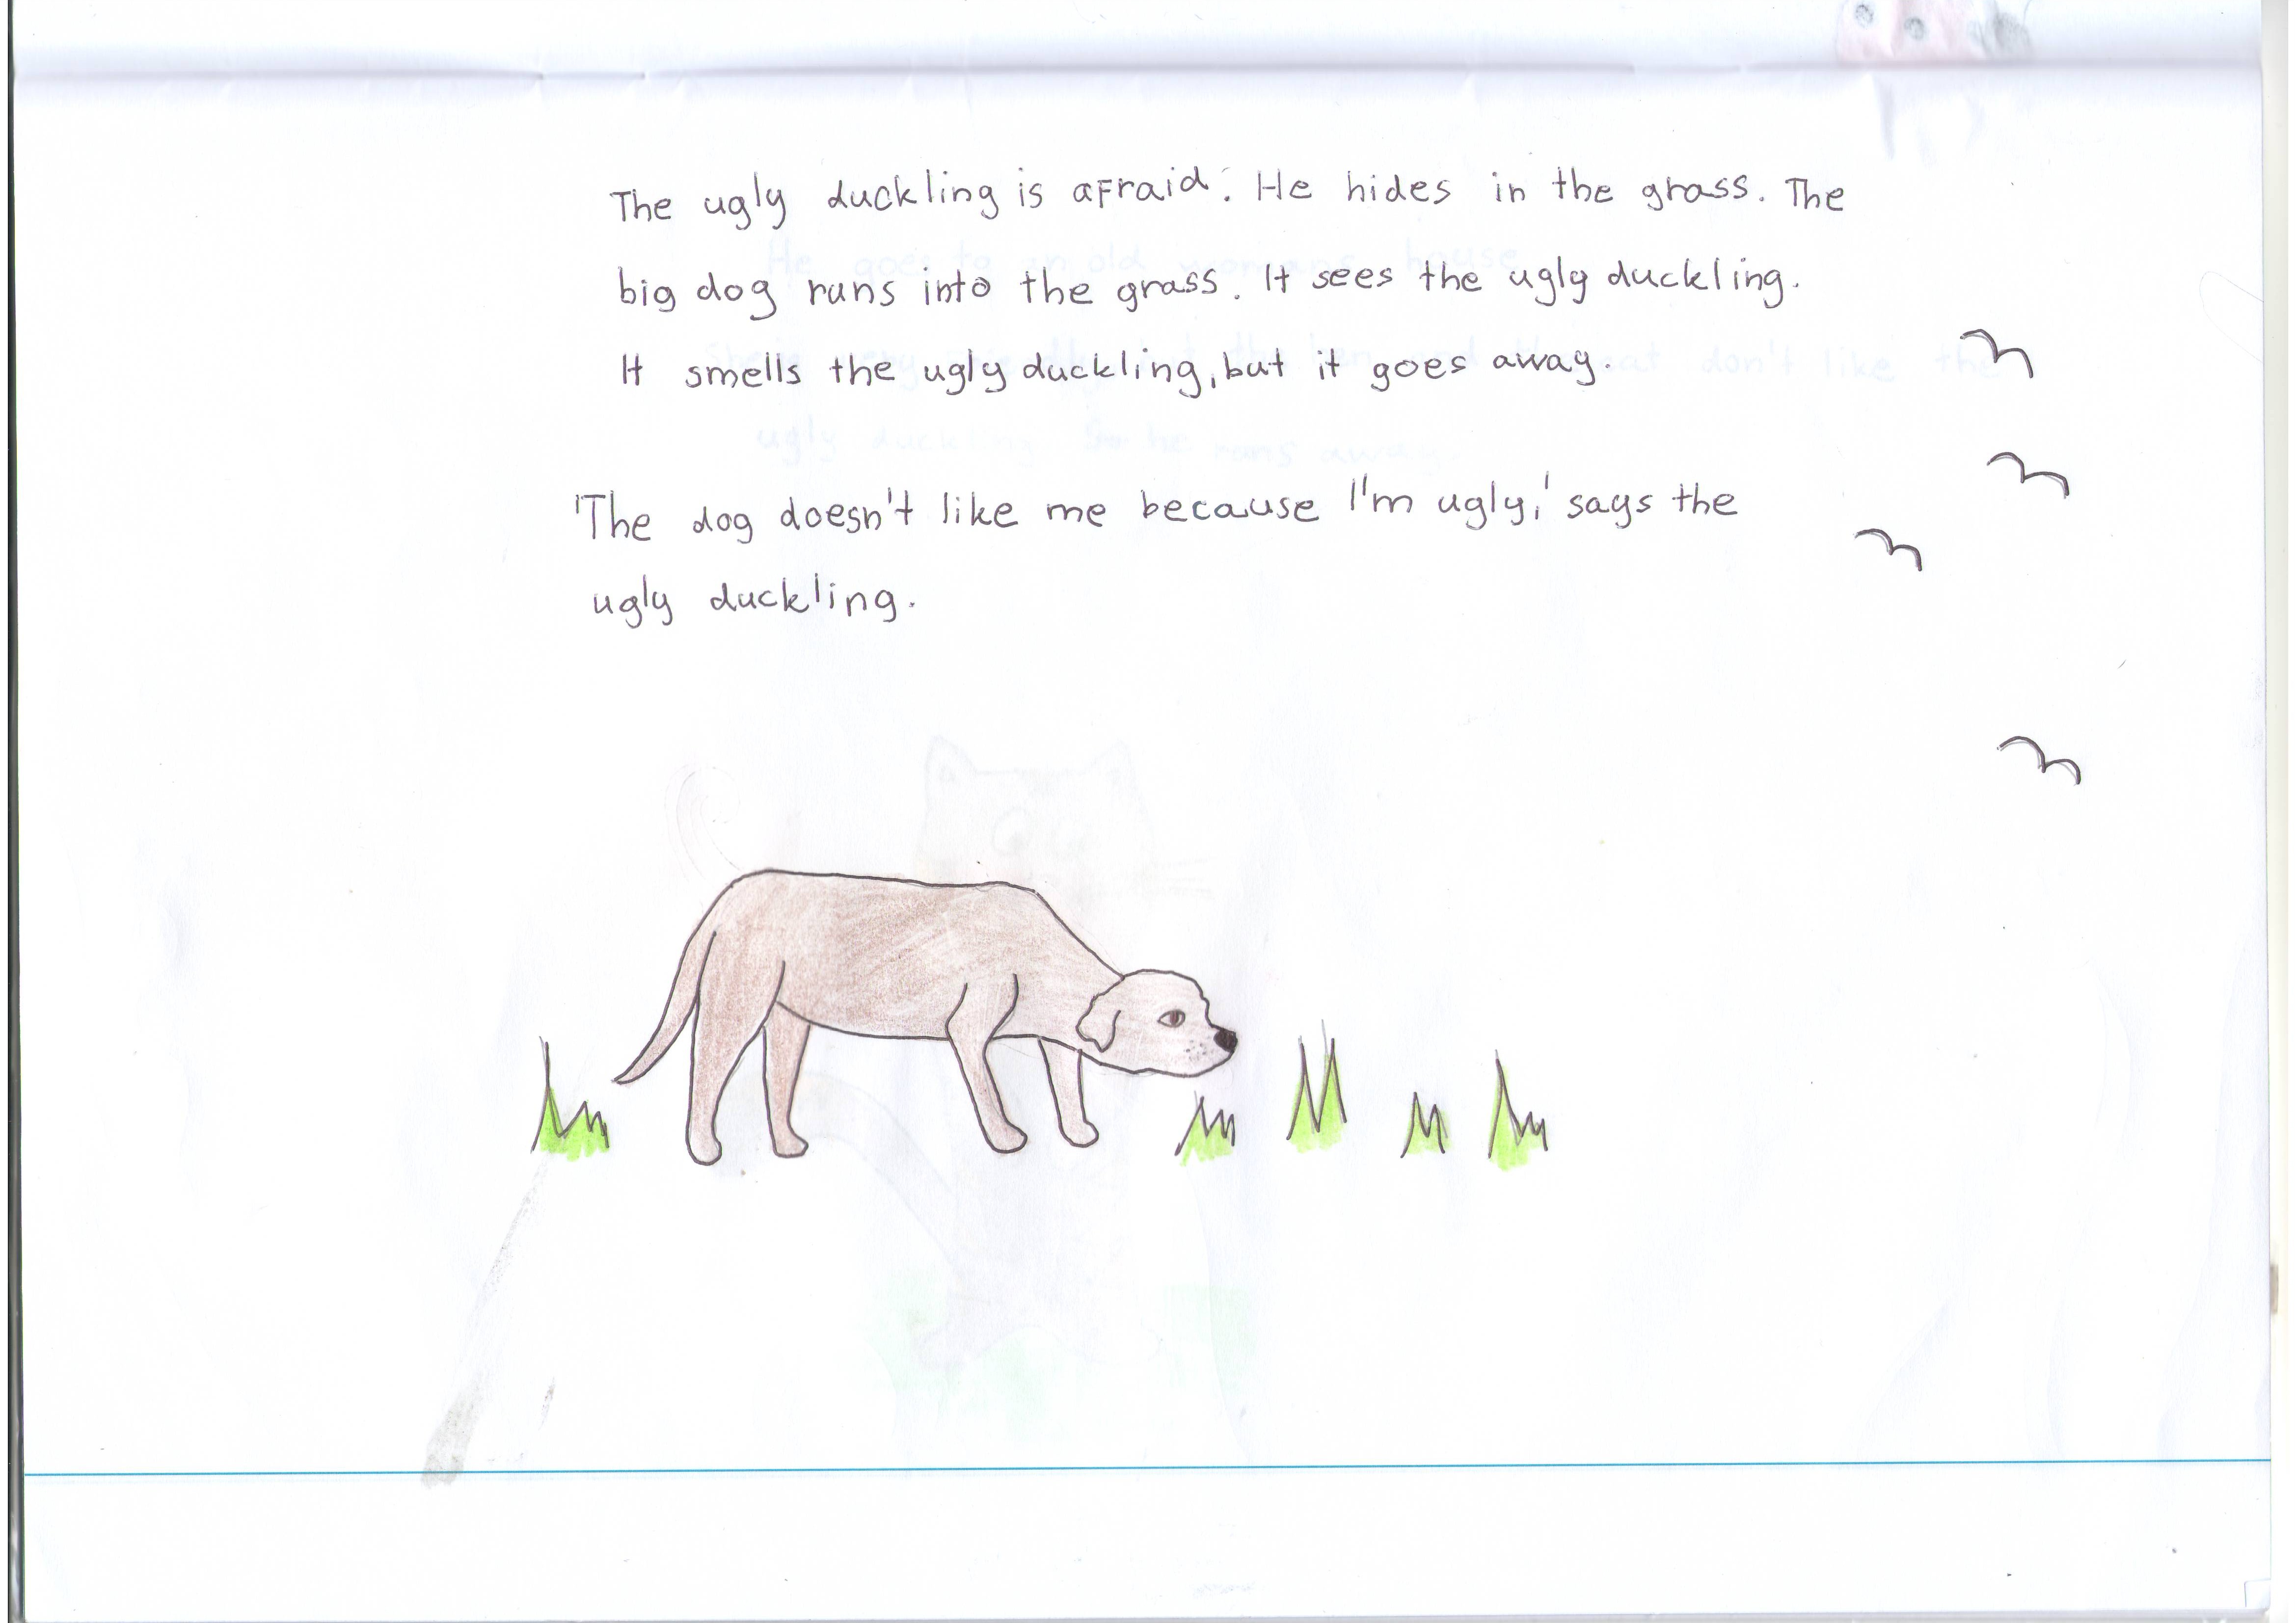 The ugly duckling is afraid. He hides in the grass. The
big dog runs into the grass. It sees the ugly duckling.
It smells the ugly duckling, but it goes away.
'The dog doesn't like me because I'm ugly,' says the
ugly duckling.